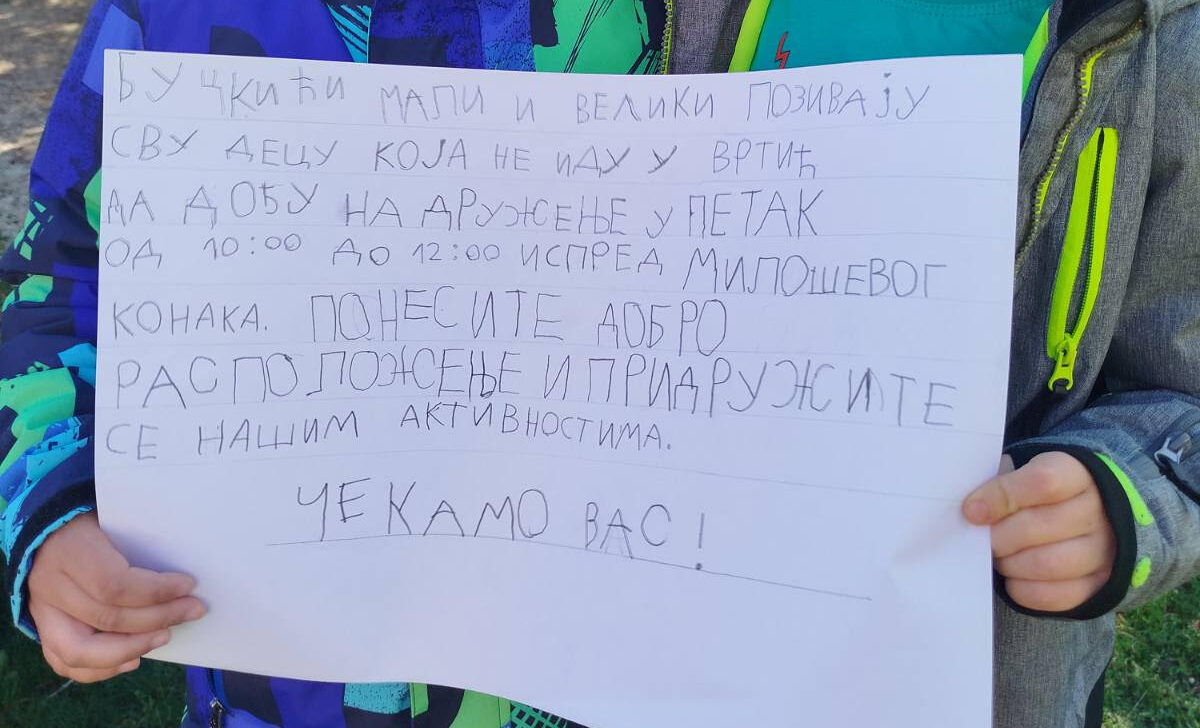 ЂУЦКИЋИ МАЛИ И ВЕЛИКИ ПОЗИВАЈУ
СВУ ДЕЦУ КОЈА НЕ ИДУ У ВРТИЋ
ДА ДОЂУ НА ДРУЖЕЊЕ У ПЕТАК
ОД 10:00 ДО 12:00 ИСПРЕД МИЛОШЕВОГ
КОНАКА. ПОНЕСИТЕ ДОБРО
РАСПОЛОЖЕЊЕ И ПРИДРУЖИТЕ
СЕ НАШИМ АКТИВНОСТИМА.
ЧЕКАМО ВАС!